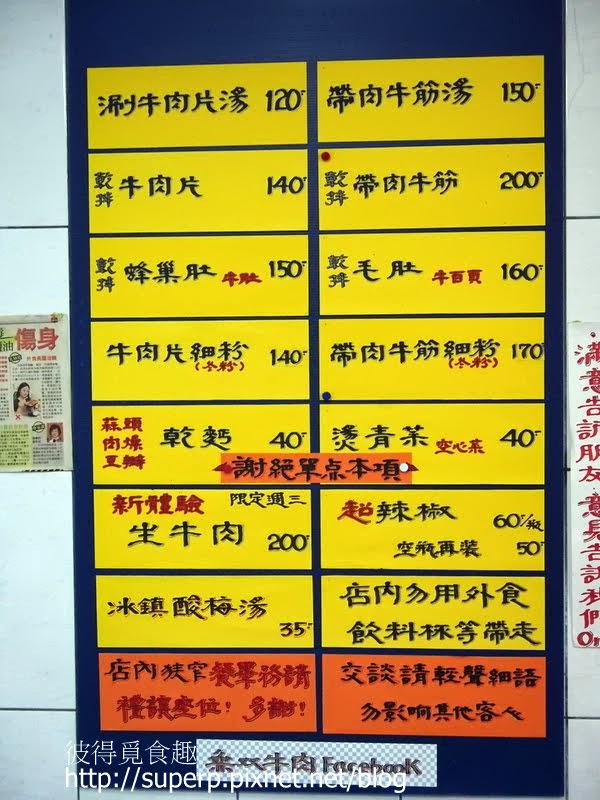 涮牛肉片湯 120元
帶肉牛筋湯 150元
乾拌 牛肉片 140元
乾拌 帶肉牛筋 200元
乾拌 蜂巢肚 牛肚 150元
乾拌 毛肚 牛百頁 160元
牛肉片細粉 140元
(冬粉)
帶肉牛筋細粉 170元
(冬粉)
蒜頭
肉燥
豆瓣
乾麵 40元
燙青菜 空心菜 40元
謝絕單点本項
新體驗 限定週三
生牛肉 200元
超辣椒 60元/瓶
空瓶再裝 50元
冰鎮酸梅湯
35元
店內勿用外食
飲料杯等帶走
店內狹窄 餐畢務請
禮讓座位! 多謝!
交談請輕聲細語
勿影响其他客人
牛肉 Facebook
傷身
滿意告訴朋友 意見告訴我們
彼得覓食趣
http://superp.pixnet.net/blog